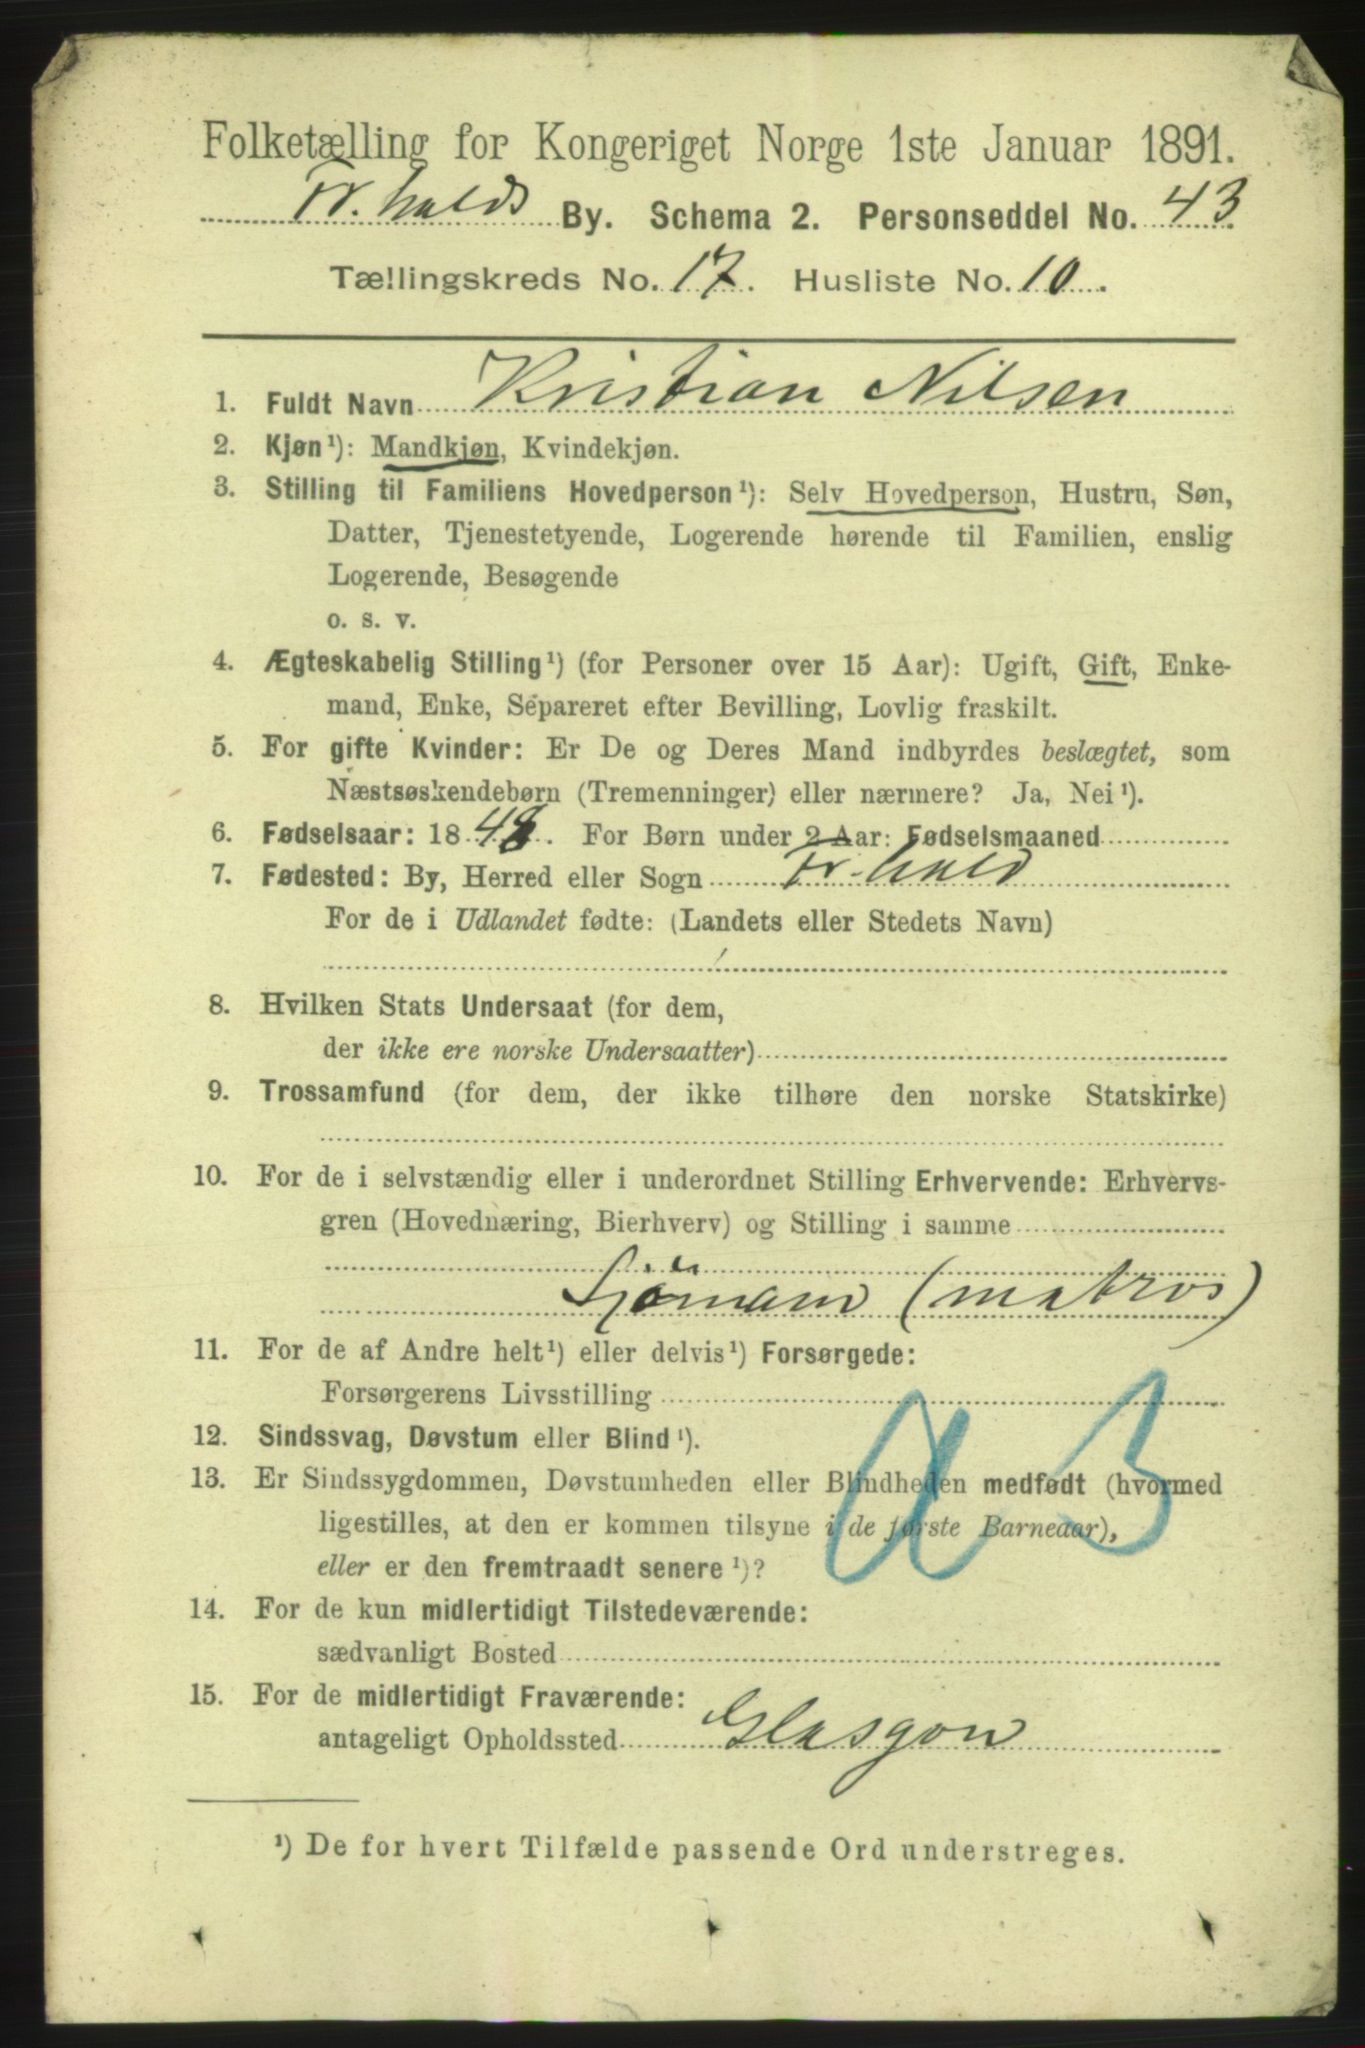 Folketælling for Kongeriget Norge 1ste Januar 1891.
Fr.halds By. Schema 2. Personseddel No. 43
Tællingskreds No. 17. Husliste No. 10.
1. Fuldt Navn Kristian Nilsen
2. Kjøn¹): Mandkjøn, Kvindekjøn.
3. Stilling til Familiens Hovedperson¹): Selv Hovedperson, Hustru, Søn,
Datter, Tjenestetyende, Logerende hørende til Familien, enslig
Logerende, Besøgende
o. s. v.
4. Ægteskabelig Stilling¹) (for Personer over 15 Aar): Ugift, Gift, Enke-
mand, Enke, Separeret efter Bevilling, Lovlig fraskilt.
5. For gifte Kvinder: Er De og Deres Mand indbyrdes beslægtet, som
Næstsøskendebørn (Tremenninger) eller nærmere? Ja, Nei¹).
6. Fødselsaar: 1848. For Børn under 2 Aar: Fødselsmaaned
7. Fødested: By, Herred eller Sogn Fr.hald
For de i Udlandet fødte: (Landets eller Stedets Navn)
8. Hvilken Stats Undersaat (for dem,
der ikke ere norske Undersaatter)
9. Trossamfund (for dem, der ikke tilhøre den norske Statskirke)
10. For de i selvstændig eller i underordnet Stilling Erhvervende: Erhvervs-
gren (Hovednæring, Bierhverv) og Stilling i samme
Sjömann (matros)
11. For de af Andre helt¹) eller delvis¹) Forsørgede:
Forsørgerens Livsstilling
12. Sindssvag, Døvstum eller Blind¹).
13. Er Sindssygdommen, Døvstumheden eller Blindheden medfødt (hvormed
ligestilles, at den er kommen tilsyne i de første Barneaar),
eller er den fremtraadt senere¹)?
14. For de kun midlertidigt Tilstedeværende:
sædvanligt Bosted
15. For de midlertidigt Fraværende:
antageligt Opholdssted Glasgow
¹) De for hvert Tilfælde passende Ord understreges.